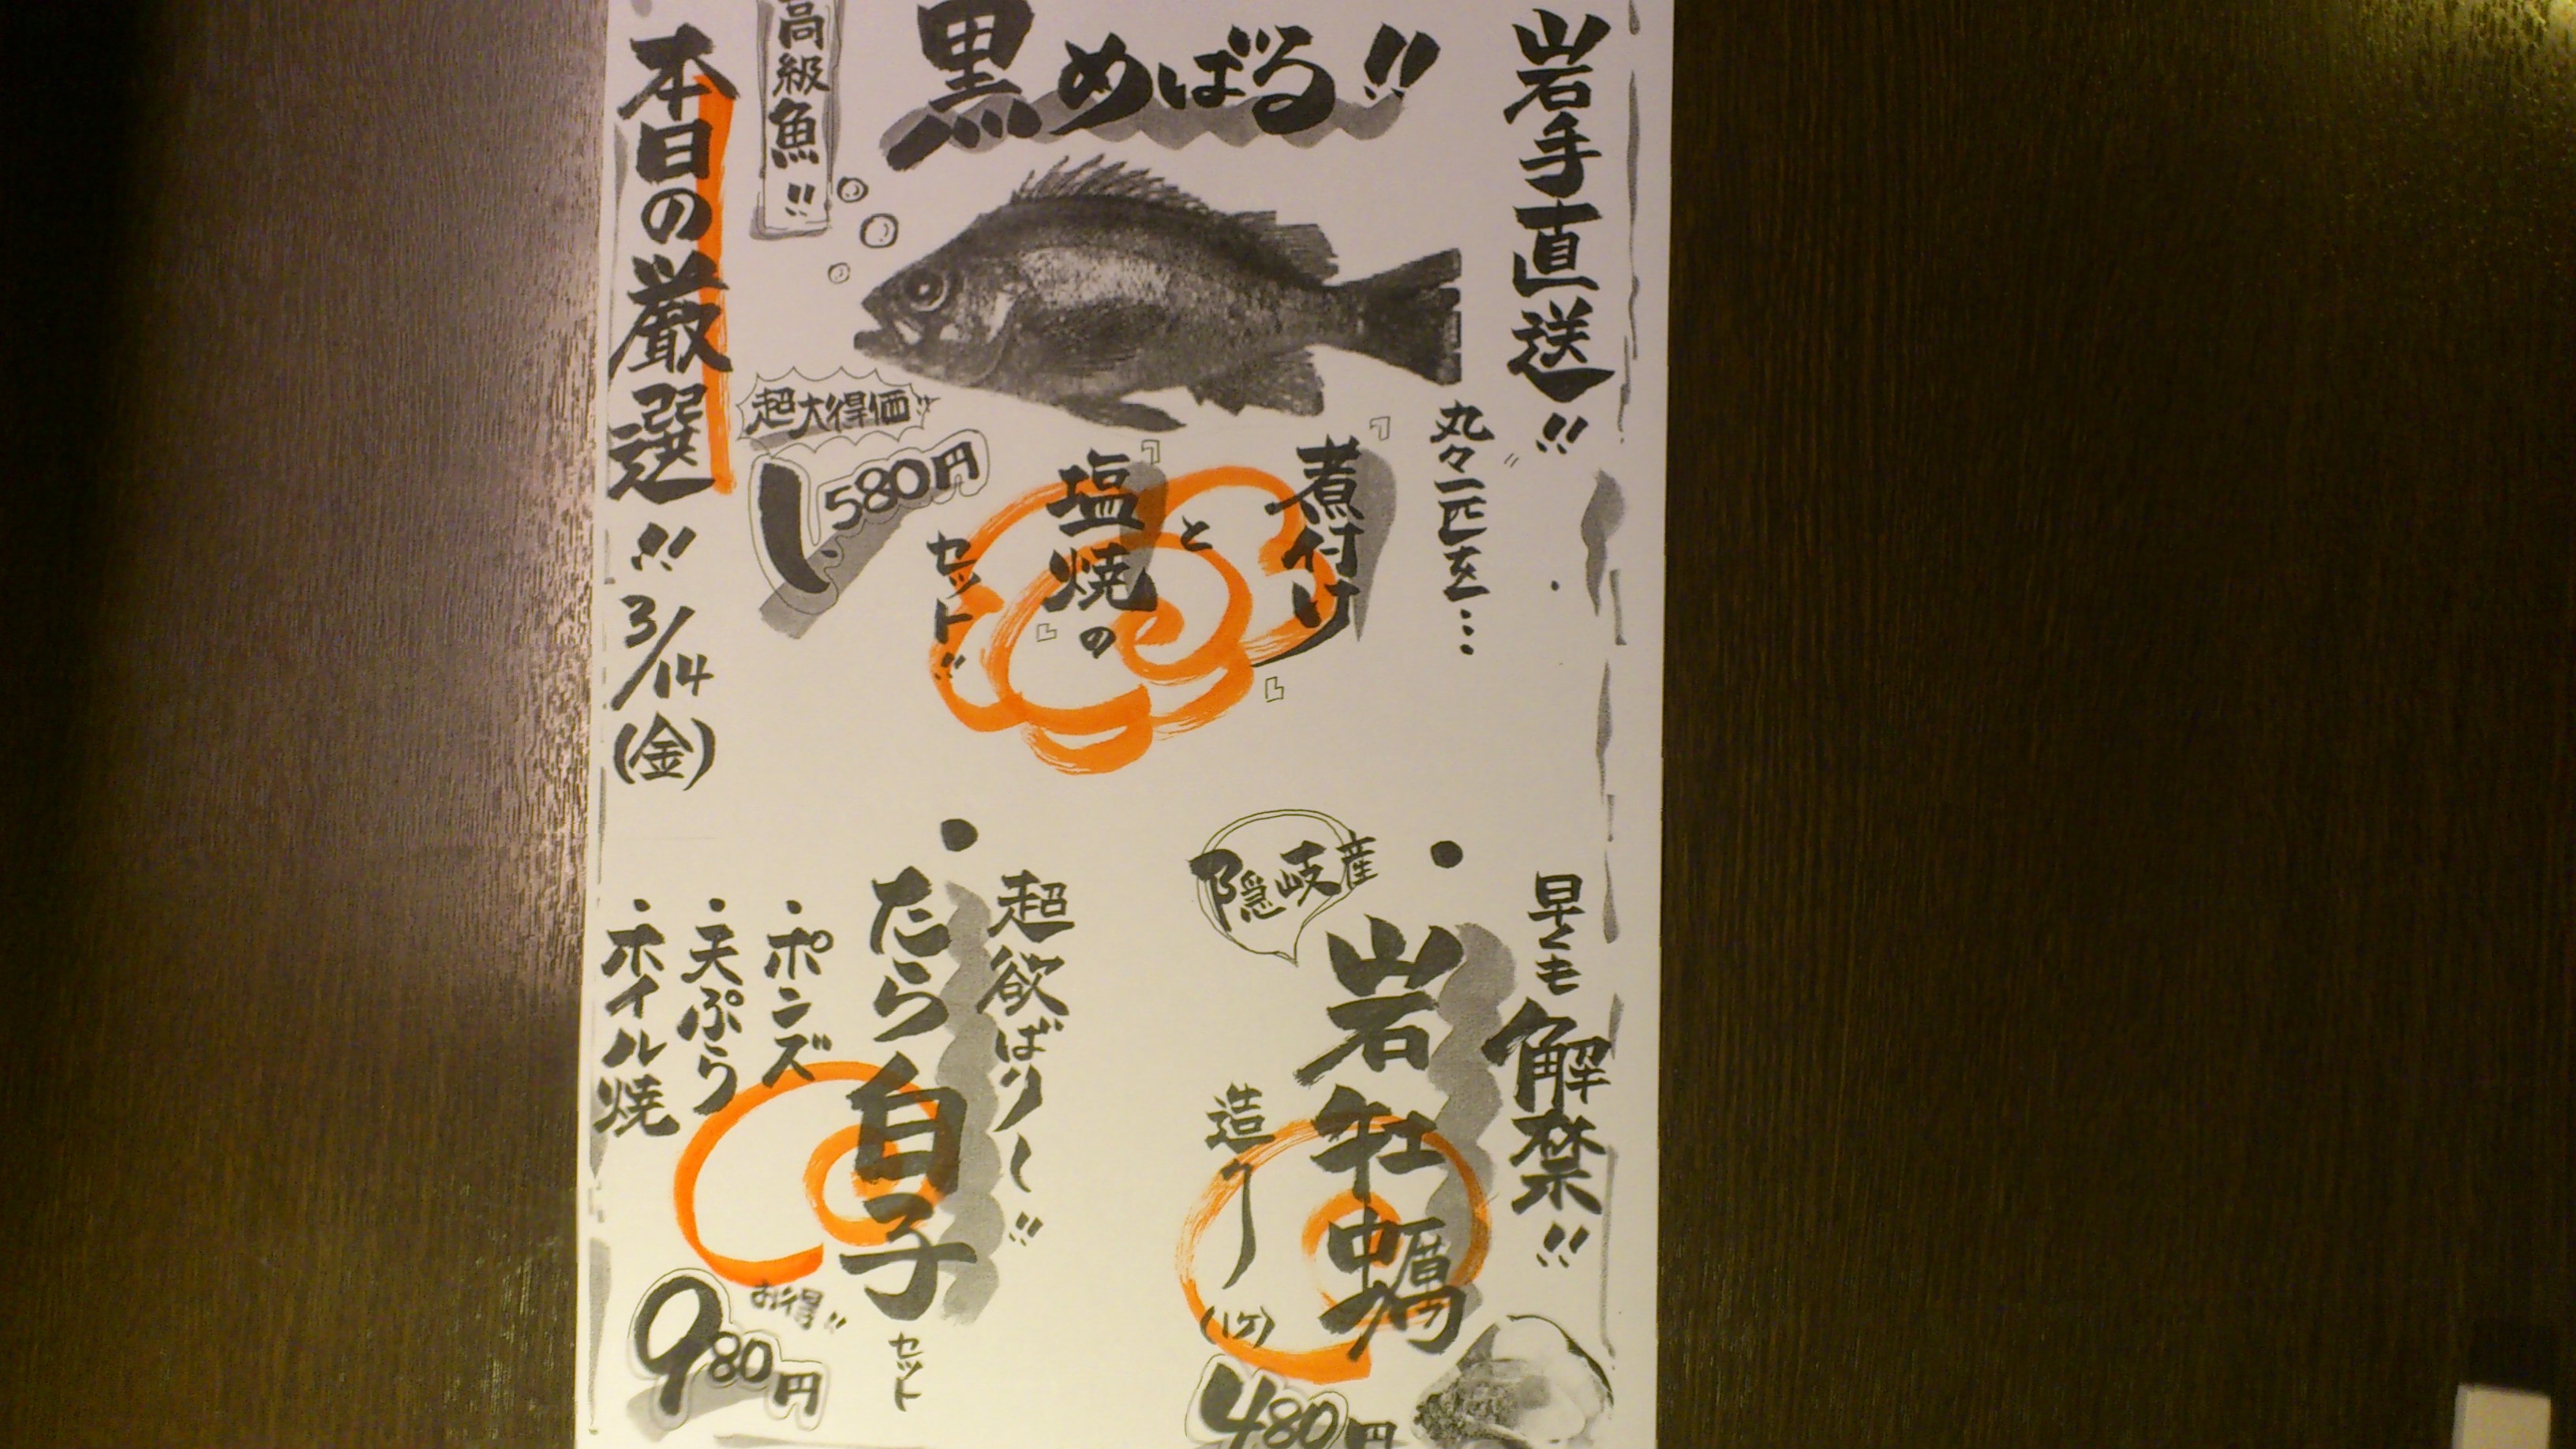 岩手直送!!
黒めばる!!
高級魚!!
丸々一匹を…
『煮付け』
と
『塩焼』の
セット!!
超大得価!!
1,580円
早くも解禁!!
隠岐産
・岩牡蠣
造り
(1ケ)
480円
超欲ばりー!!
・たら白子
セット
・ポンズ
・天ぷら
・ホイル焼
お得!!
980円
本日の厳選!! 3/14(金)